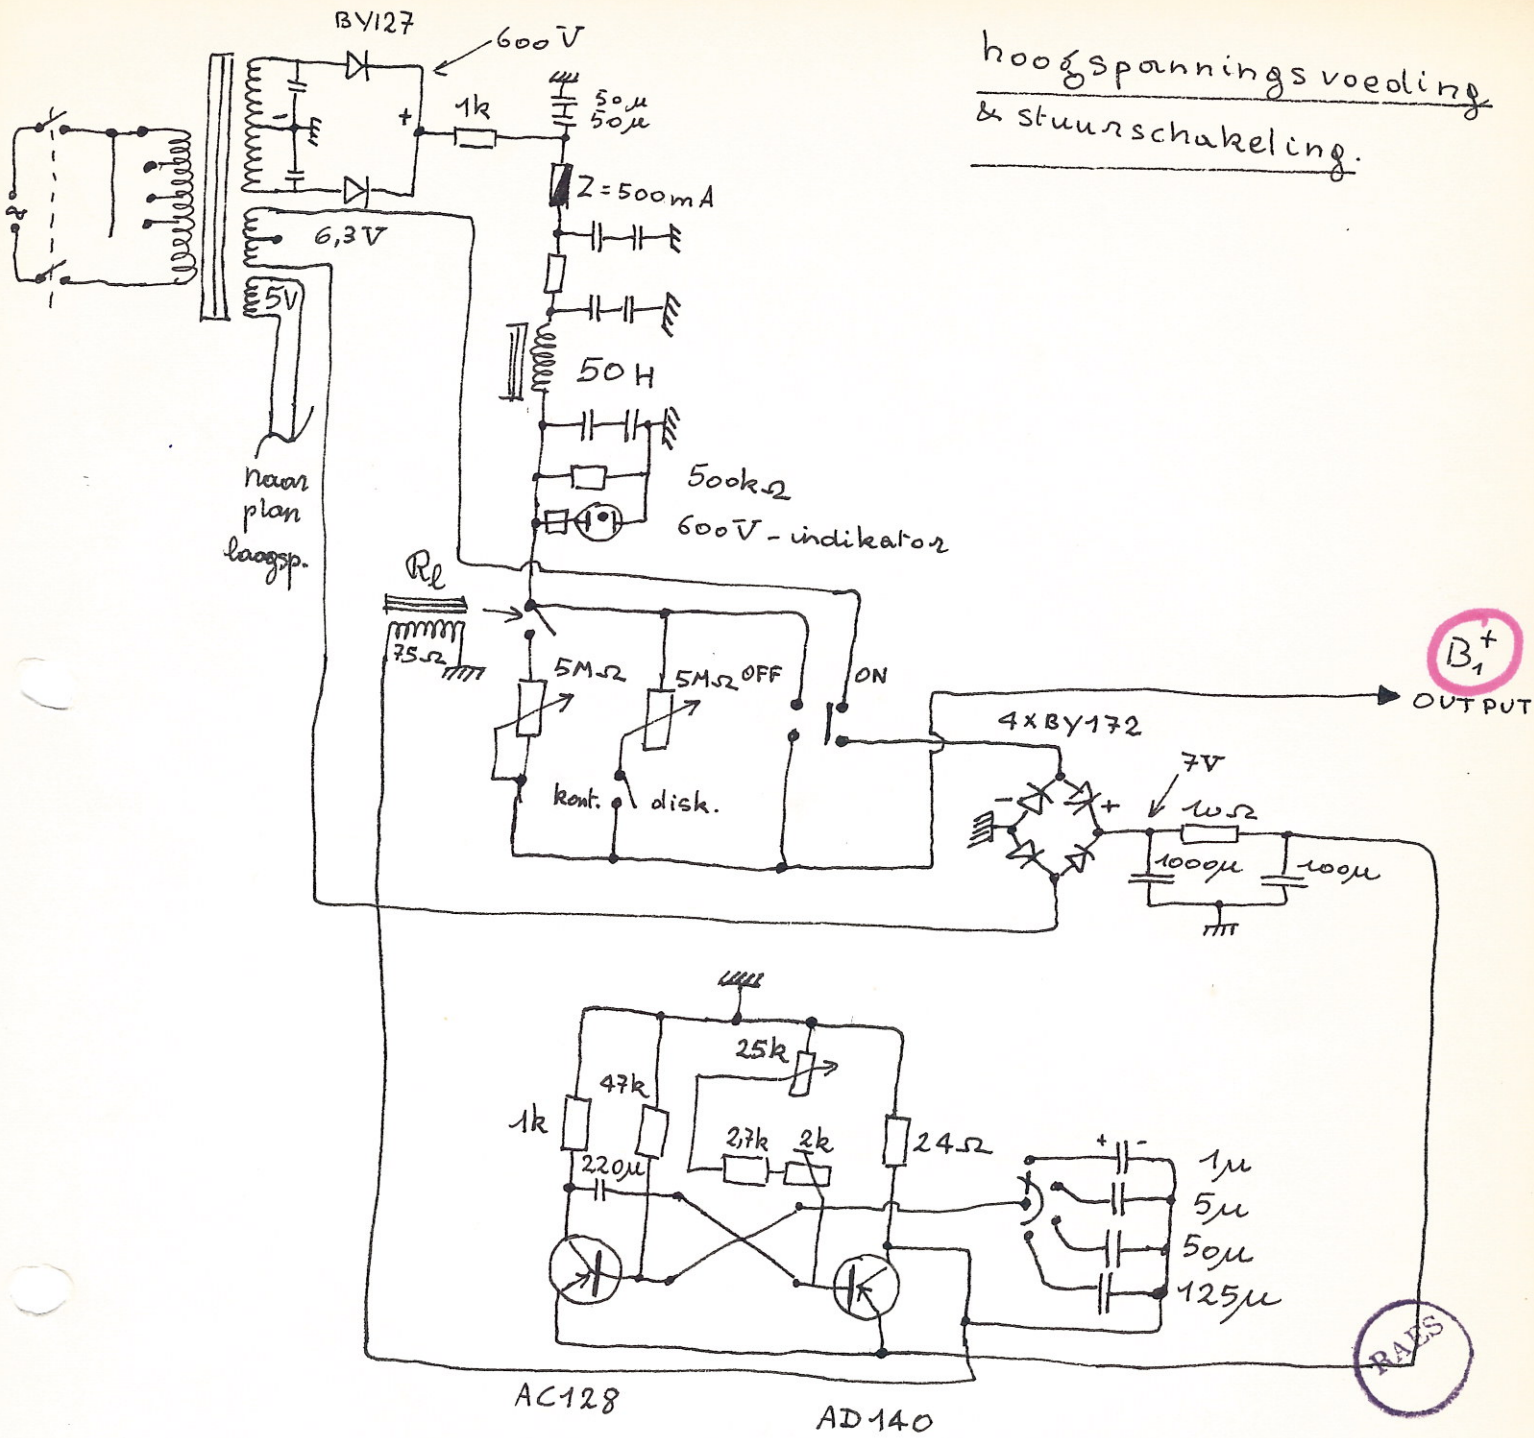 BY127
600V
hoogspanningsvoeding
& stuurschakeling.
1k
50µ
50µ
-
+
Z=500mA
6,3V
5V
50H
naar
plan
laagsp.
500kΩ
600V-indikator
Rl
75Ω
5MΩ
5MΩ
OFF
ON
B1+
OUTPUT
4xBY172
7V
kont.
disk.
-
+
10Ω
1000µ
100µ
25k
47k
1k
2,7k
2k
24Ω
220µ
+ -
1µ
5µ
50µ
125µ
RAES
AC128
AD140